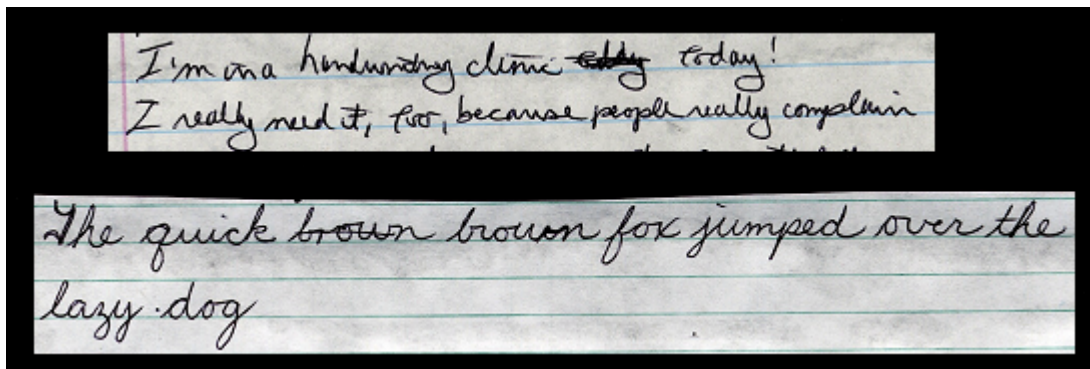 I'm in a handwriting clinic today!
I really need it, too, because people really complain
The quick brown brown fox jumped over the
lazy dog